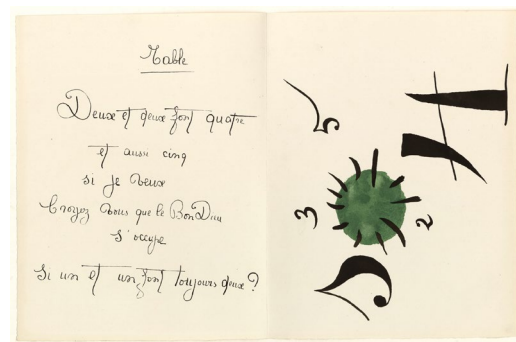 Table
Deux et deux font quatre
et aussi cinq
si je veux
Croyez vous que le Bon Dieu
s'occupe
si un et un font toujours deux ?
5
3
2